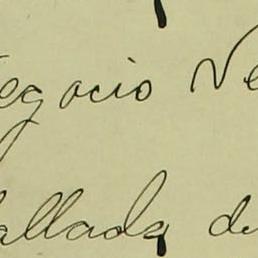 egocio Ne
allada de